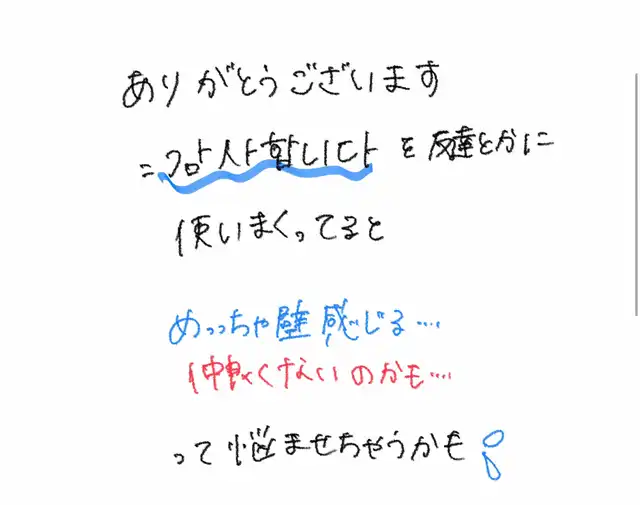 ありがとうございます
=감사합니다を友達とかに
使いまくってると
めっちゃ壁感じる…
仲良くないのかも…
って悩ませちゃうかも